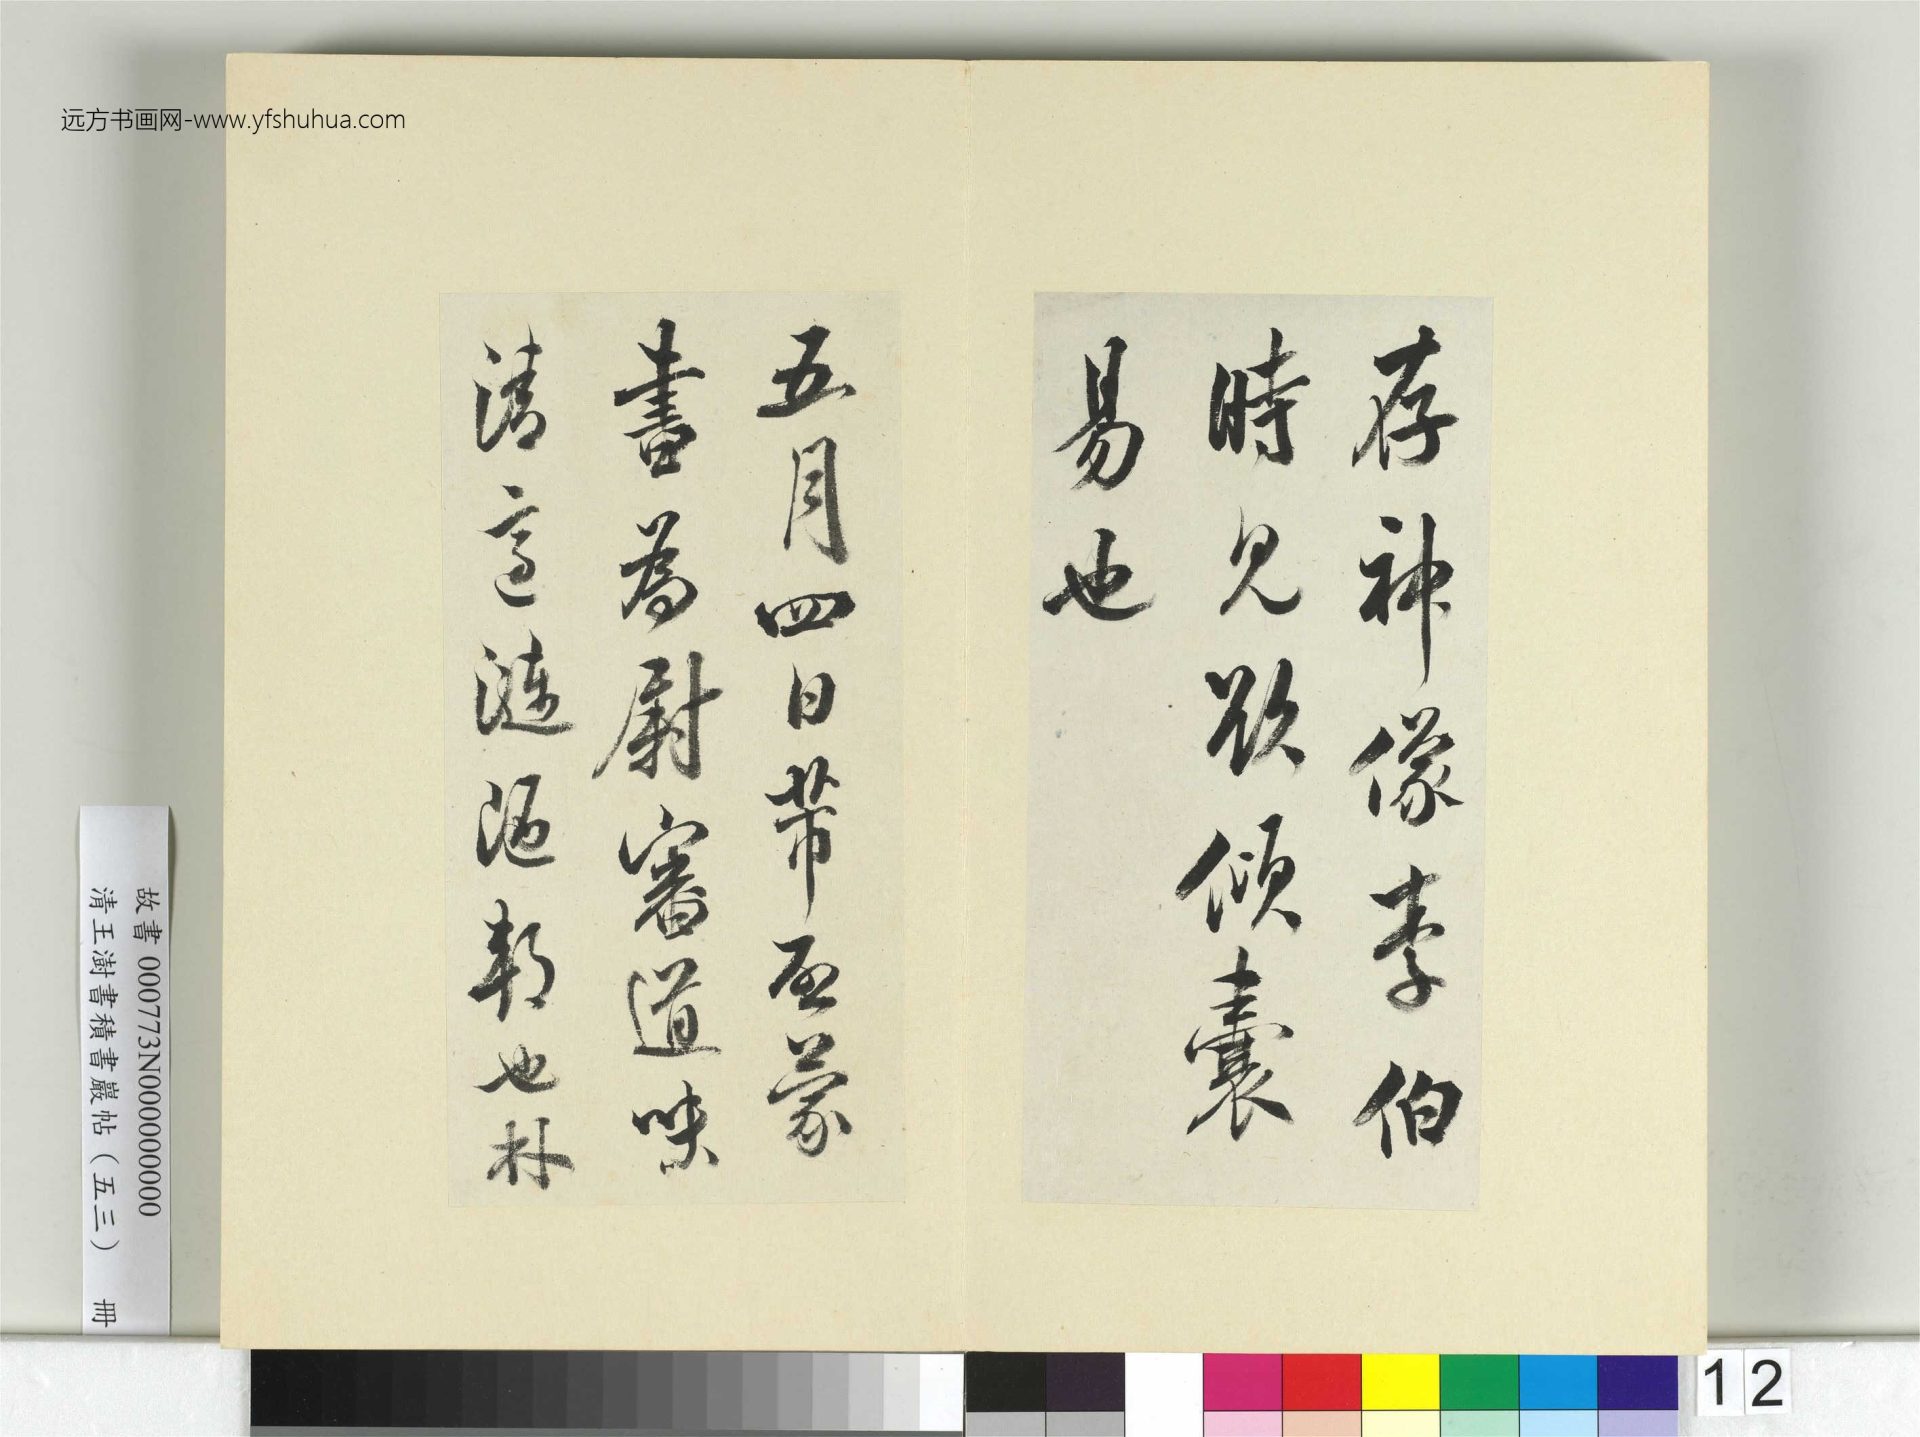 远方书画网-www.yfshuhua.com
存神像李伯
時見欲傾囊
易也
五月四日芾啓蒙
書為慰審道味
清適漣漪郡也林
故書 000773N000000000
清王澍書積書巖帖(五三) 冊
12